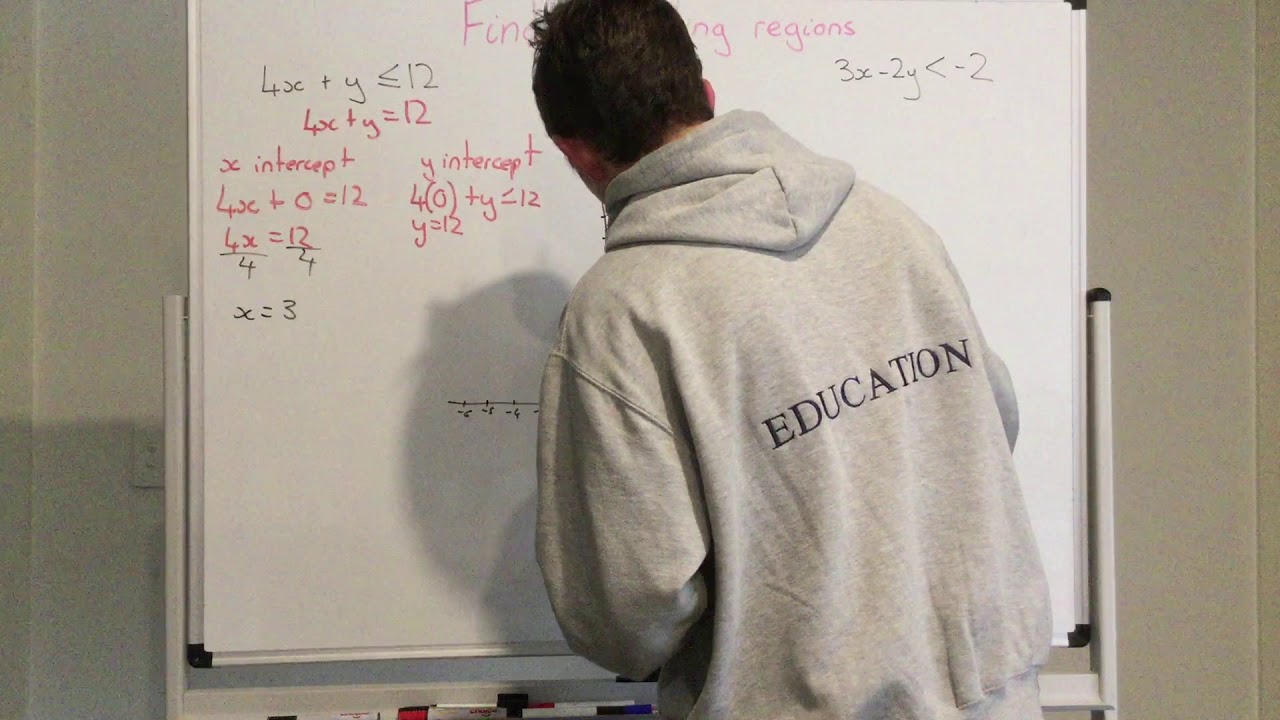 Find ing regions
4x + y ≤ 12
4x + y = 12
x intercept
4x + 0 = 12
4x = 12
4 4
x = 3
y intercept
4(0) + y ≤ 12
y = 12
3x - 2y < -2
-6 -5 -4
EDUCATION